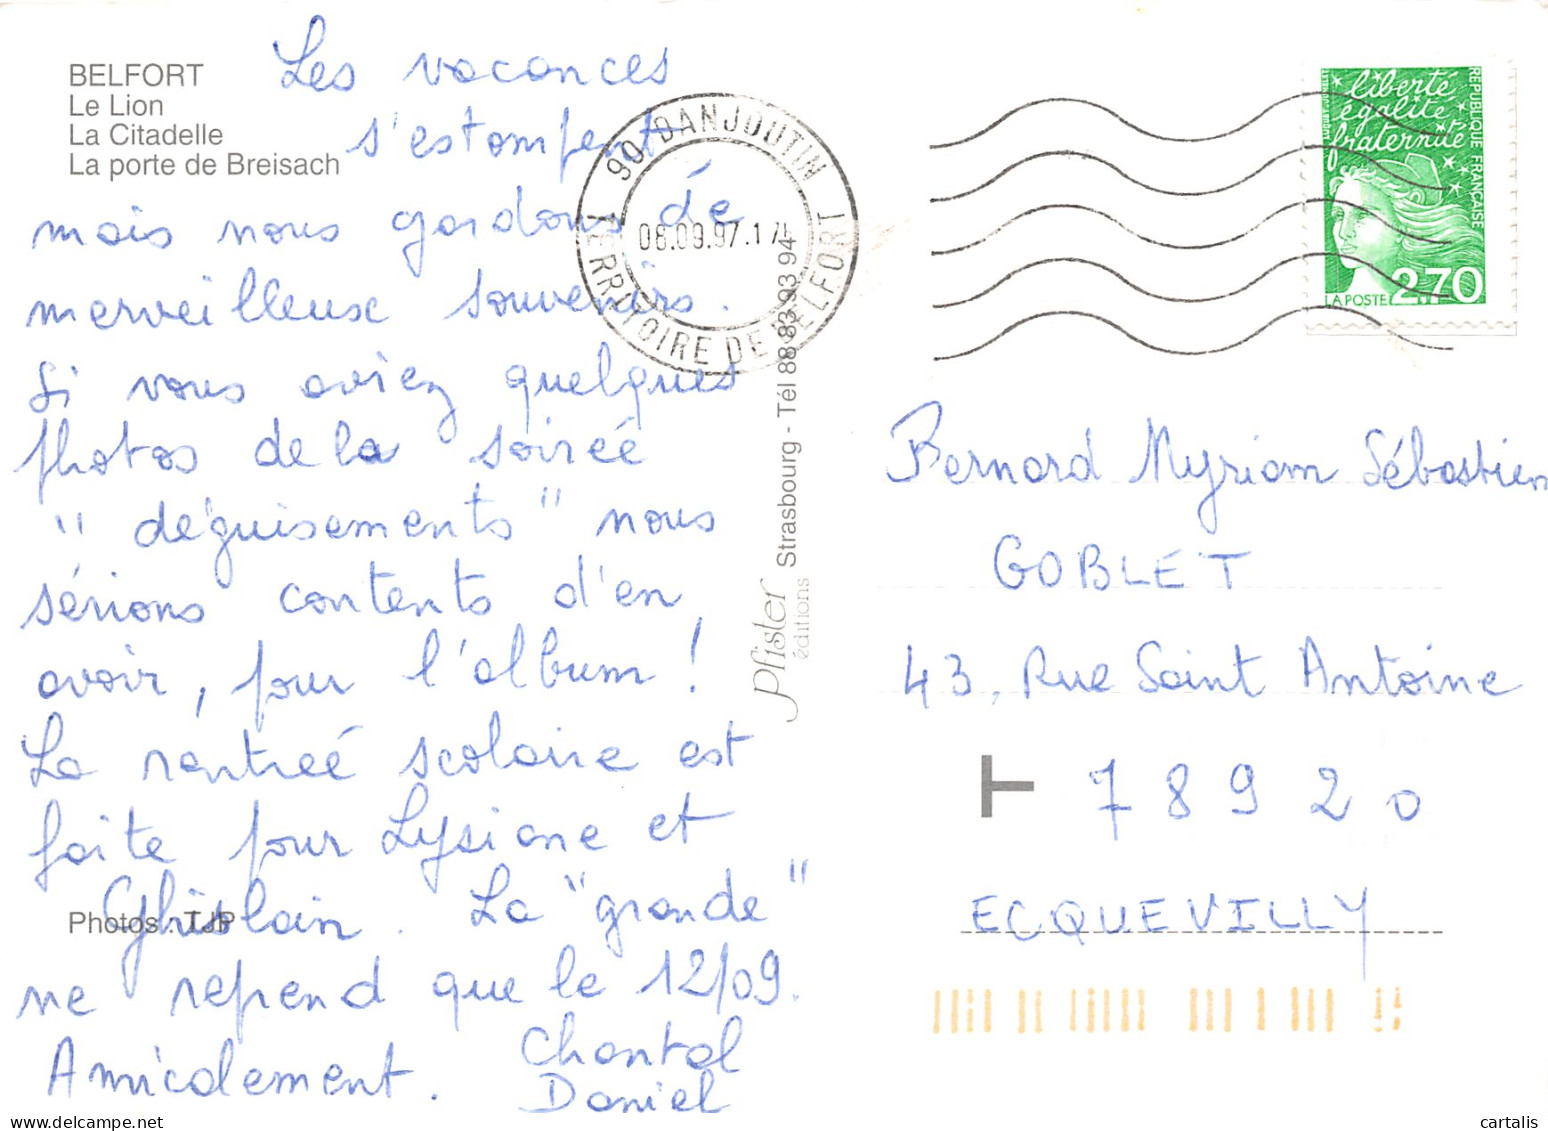 BELFORT
Le Lion
La Citadelle
La porte de Breisach
Les vacances
s'estompent
mais nous gardons dé
merveilleux souvenirs.
Si vous aviez quelques
photos de la soireé
"déguisements" nous
sérions contents d'en
avoir, pour l'album !
La rentreé scolaire est
faite pour Lysiane et
Ghislain. La "grande"
ne repend que le 12/09.
Amicalement. Chantal
Daniel
Photos : TJP
90 DANJOUTIN
08.09.97.17
TERRITOIRE DE BELFORT
Pfister
éditions Strasbourg - Tél 88 83 93 94
liberté
égalité
fraternité
RÉPUBLIQUE FRANÇAISE
LA POSTE 2,70
Bernard Myriam Sébastien
GOBLET
43, Rue Saint Antoine
T 78920
ECQUEVILLY
cartalis